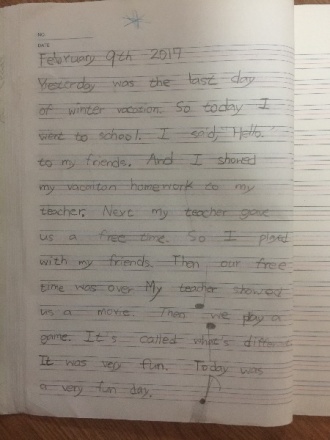 NO.
DATE
February 9th 2017
Yesterday was the last day
of winter vacation. So today I
went to school. I said, "Hello."
to my friends. And I shared
my vacaiton homework to my
teacher. Next my teacher gave
us a free time. So I played
with my friends. Then our free
time was over My teacher showed
us a movie. Then we play a
game. It's called what's different
It was very fun. Today was
a very fun day.